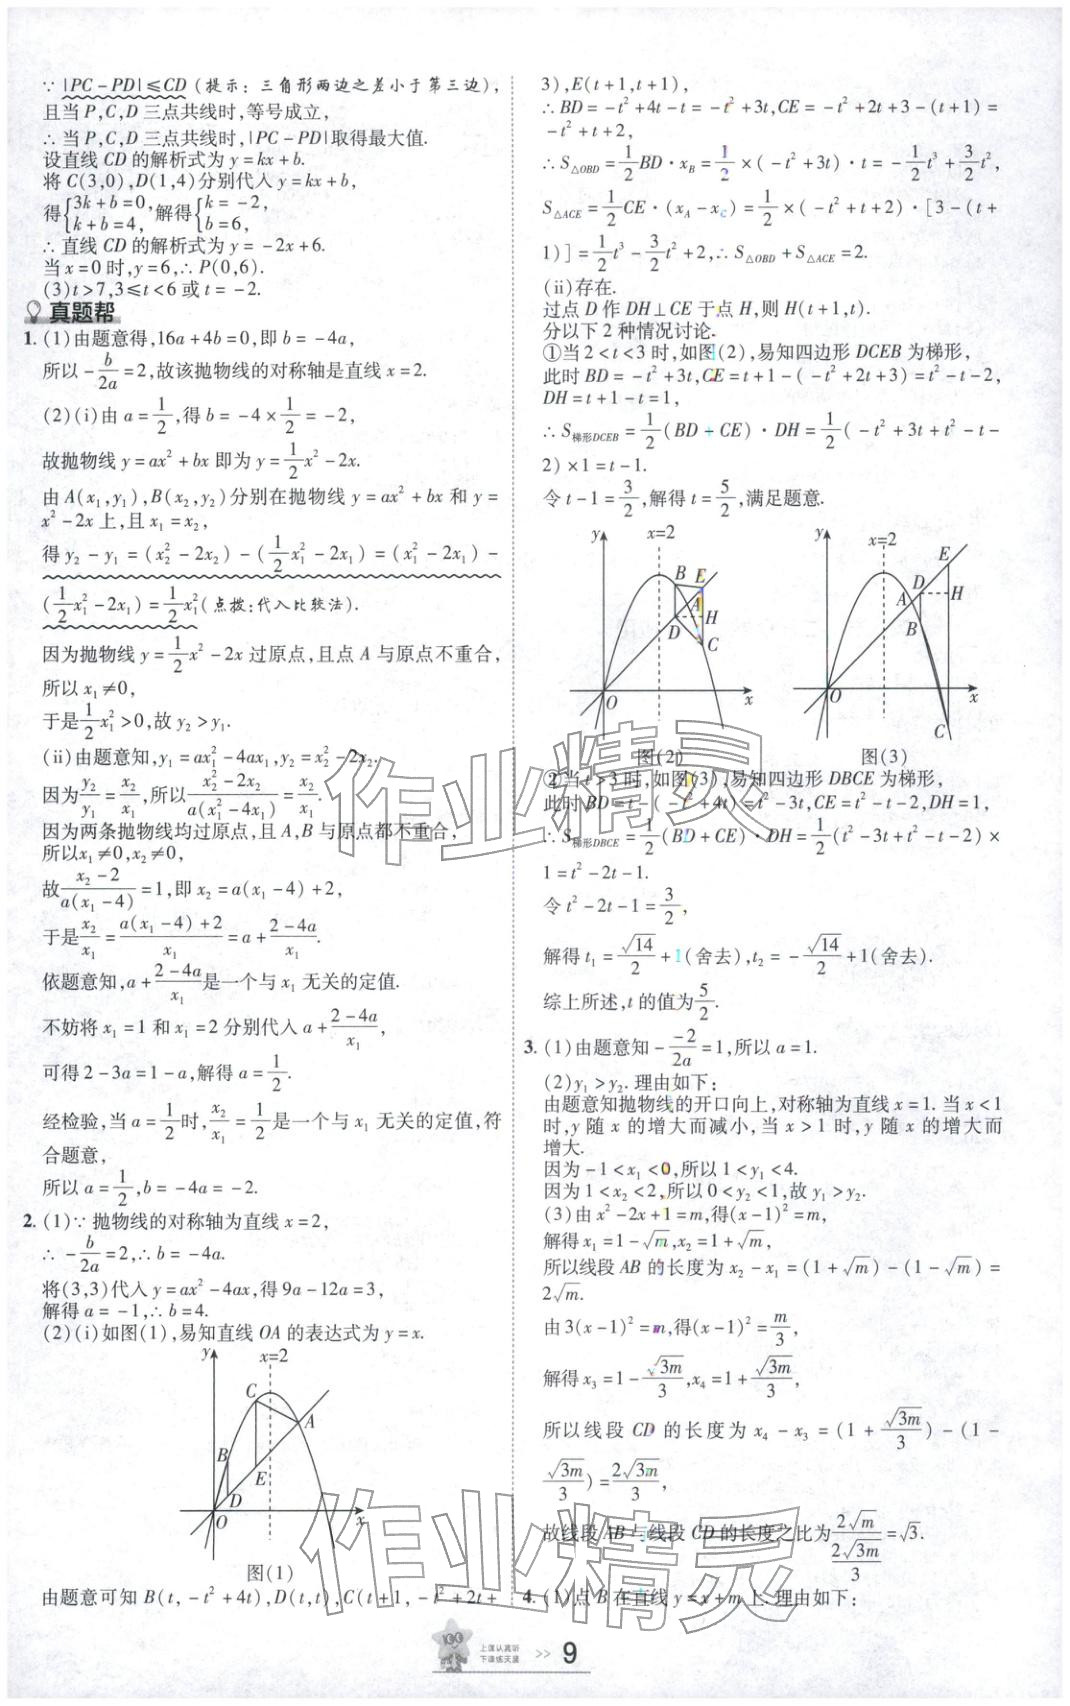 ∵ |PC-PD|≤CD (提示:三角形两边之差小于第三边),
且当 P,C,D 三点共线时,等号成立,
∴ 当 P,C,D 三点共线时,|PC-PD|取得最大值.
设直线 CD 的解析式为 y=kx+b.
将 C(3,0),D(1,4)分别代入 y=kx+b,
得{3k+b=0, k+b=4, 解得{k=-2, b=6,
∴ 直线 CD 的解析式为 y=-2x+6.
当 x=0 时,y=6,∴ P(0,6).
(3)t>7,3≤t<6 或 t=-2.
真题帮
1. (1)由题意得,16a+4b=0,即 b=-4a,
所以 -b/2a=2,故该抛物线的对称轴是直线 x=2.
(2)(i)由 a=1/2,得 b=-4×1/2=-2,
故抛物线 y=ax²+bx 即为 y=1/2x²-2x.
由 A(x₁,y₁),B(x₂,y₂)分别在抛物线 y=ax²+bx 和 y=
x²-2x 上,且 x₁=x₂,
得 y₂-y₁=(x₂²-2x₂)-(1/2x₁²-2x₁)=(x₁²-2x₁)-
(1/2x₁²-2x₁)=1/2x₁²(点拨:代入比较法).
因为抛物线 y=1/2x²-2x 过原点,且点 A 与原点不重合,
所以 x₁≠0,
于是1/2x₁²>0,故 y₂>y₁.
(ii)由题意知,y₁=ax₁²-4ax₁,y₂=x₂²-2x₂.
因为y₂/y₁=x₂/x₁,所以(x₂²-2x₂)/(a(x₁²-4x₁))=x₂/x₁.
因为两条抛物线均过原点,且 A,B 与原点都不重合,
所以x₁≠0,x₂≠0,
故(x₂-2)/(a(x₁-4))=1,即 x₂=a(x₁-4)+2,
于是x₂/x₁=(a(x₁-4)+2)/x₁=a+(2-4a)/x₁.
依题意知,a+(2-4a)/x₁是一个与 x₁ 无关的定值.
不妨将 x₁=1 和 x₁=2 分别代入 a+(2-4a)/x₁,
可得 2-3a=1-a,解得 a=1/2.
经检验,当 a=1/2时,x₂/x₁=1/2是一个与 x₁ 无关的定值,符
合题意,
所以 a=1/2,b=-4a=-2.
2. (1)∵ 抛物线的对称轴为直线 x=2,
∴ -b/2a=2,∴ b=-4a.
将(3,3)代入 y=ax²-4ax,得 9a-12a=3,
解得 a=-1,∴ b=4.
(2)(i)如图(1),易知直线 OA 的表达式为 y=x.
y
x=2
C
A
B
E
D
O
x
图(1)
由题意可知 B(t,-t²+4t),D(t,t),C(t+1,-t²+2t+
3),E(t+1,t+1),
∴ BD=-t²+4t-t=-t²+3t,CE=-t²+2t+3-(t+1)=
-t²+t+2,
∴ S△OBD=1/2BD·x_B=1/2×(-t²+3t)·t=-1/2t³+3/2t²,
S△ACE=1/2CE·(x_A-x_C)=1/2×(-t²+t+2)·[3-(t+
1)]=1/2t³-3/2t²+2,∴ S△OBD+S△ACE=2.
(ii)存在.
过点 D 作 DH⊥CE 于点 H,则 H(t+1,t).
分以下 2 种情况讨论.
①当 2<t<3 时,如图(2),易知四边形 DCEB 为梯形,
此时 BD=-t²+3t,CE=t+1-(-t²+2t+3)=t²-t-2,
DH=t+1-t=1,
∴ S梯形DCEB=1/2(BD+CE)·DH=1/2(-t²+3t+t²-t-
2)×1=t-1.
令 t-1=3/2,解得 t=5/2,满足题意.
y
x=2
B
E
A
D
H
C
O
x
图(2)
y
x=2
E
D
A
H
B
O
x
C
图(3)
②当 t>3 时,如图(3),易知四边形 DBCE 为梯形,
此时 BD=t-(-t²+4t)=t²-3t,CE=t²-t-2,DH=1,
∴ S梯形DBCE=1/2(BD+CE)·DH=1/2(t²-3t+t²-t-2)×
1=t²-2t-1.
令 t²-2t-1=3/2,
解得 t₁=√14/2+1(舍去),t₂=-√14/2+1(舍去).
综上所述,t 的值为5/2.
3. (1)由题意知 -(-2)/2a=1,所以 a=1.
(2)y₁>y₂. 理由如下:
由题意知抛物线的开口向上,对称轴为直线 x=1. 当 x<1
时,y 随 x 的增大而减小,当 x>1 时,y 随 x 的增大而
增大.
因为 -1<x₁<0,所以 1<y₁<4.
因为 1<x₂<2,所以 0<y₂<1,故 y₁>y₂.
(3)由 x²-2x+1=m,得(x-1)²=m,
解得 x₁=1-√m,x₂=1+√m,
所以线段 AB 的长度为 x₂-x₁=(1+√m)-(1-√m)=
2√m.
由 3(x-1)²=m,得(x-1)²=m/3,
解得 x₃=1-√3m/3,x₄=1+√3m/3,
所以线段 CD 的长度为 x₄-x₃=(1+√3m/3)-(1-
√3m/3)=2√3m/3,
故线段 AB 与线段 CD 的长度之比为2√m/(2√3m/3)=√3.
4. (1)点 B 在直线 y=x+m 上. 理由如下:
作业精灵
作业精灵
上课认真听
下课练天星
>> 9